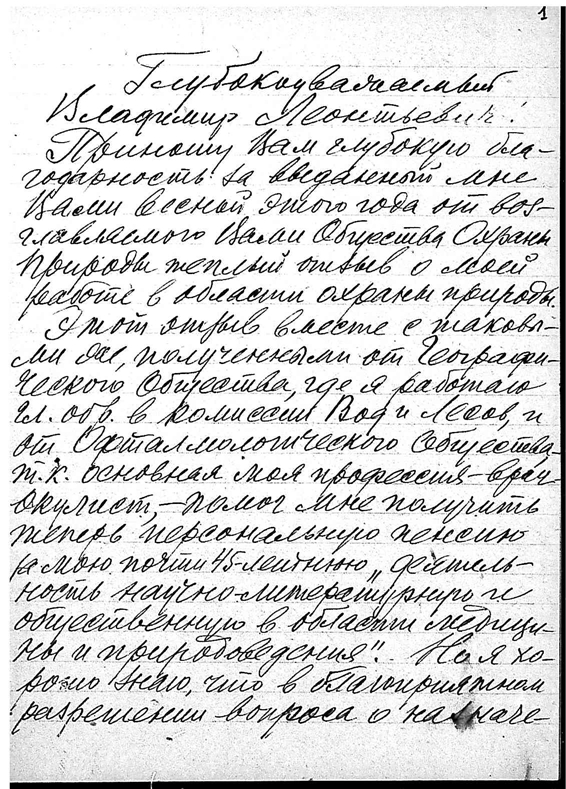 1
Глубокоуважаемый
Владимир Леонтьевич!
Приношу Вам глубокую бла-
годарность за выданный мне
Вами весной этого года от воз-
главляемого Вами Общества Охраны
Природы теплый отзыв о моей
работе в области охраны природы.
Этот отзыв вместе с таковы-
ми же, полученными от Географи-
ческого Общества, где я работаю
гл. обр. в комиссии Вод и Лесов, и
от Офталмологического Общества,
т.к. основная моя профессия - врач-
окулист, - помог мне получить
теперь персональную пенсию
за мою почти 45-летнюю „деятель-
ность научно-литературную и
общественную в области медици-
ны и природоведения". Но я хо-
рошо знаю, что в благоприятном
разрешении вопроса о назначе-